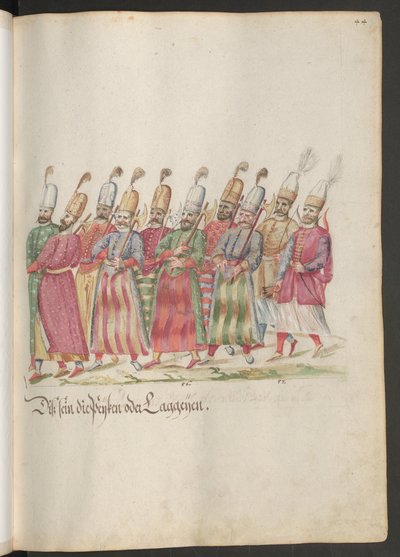 44
Diß sein die Peyken oder Laggeyen.